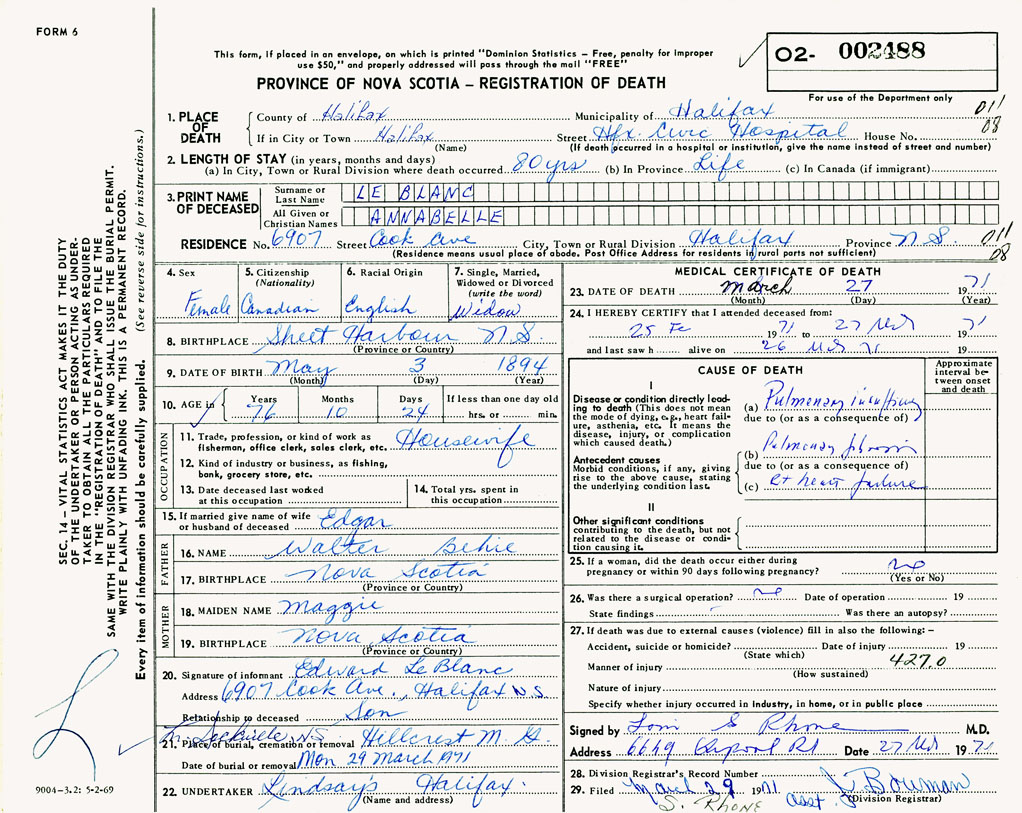 FORM 6
This form, if placed in an envelope, on which is printed "Dominion Statistics – Free, penalty for improper
use $50," and properly addressed will pass through the mail "FREE"
PROVINCE OF NOVA SCOTIA – REGISTRATION OF DEATH
O2- 002488
For use of the Department only
1. PLACE OF DEATH
County of Halifax Municipality of Halifax 011
If in City or Town Halifax Street Hfx. Civic Hospital House No. 08
(Name) (If death occurred in a hospital or institution, give the name instead of street and number)
2. LENGTH OF STAY (in years, months and days)
(a) In City, Town or Rural Division where death occurred 80 yrs (b) In Province Life (c) In Canada (if immigrant)
3. PRINT NAME OF DECEASED
Surname or Last Name LE BLANC
All Given or Christian Names ANNABELLE
RESIDENCE No. 6907 Street Cook Ave City, Town or Rural Division Halifax Province N.S. 011
(Residence means usual place of abode. Post Office Address for residents in rural parts not sufficient) 08
4. Sex
Female
5. Citizenship
(Nationality)
Canadian
6. Racial Origin
English
7. Single, Married,
Widowed or Divorced
(write the word)
Widow
8. BIRTHPLACE Sheet Harbour N.S.
(Province or Country)
9. DATE OF BIRTH May 3 1894
(Month) (Day) (Year)
10. AGE in
Years Months Days If less than one day old
76 10 24 hrs. or min.
OCCUPATION
11. Trade, profession, or kind of work as
fisherman, office clerk, sales clerk, etc. Housewife
12. Kind of industry or business, as fishing,
bank, grocery store, etc.
13. Date deceased last worked
at this occupation
14. Total yrs. spent in
this occupation
15. If married give name of wife
or husband of deceased Edgar
FATHER
16. NAME Walter Behie
17. BIRTHPLACE Nova Scotia
(Province or Country)
MOTHER
18. MAIDEN NAME Maggie
19. BIRTHPLACE Nova Scotia
(Province or Country)
20. Signature of informant Edward LeBlanc
Address 6907 Cook Ave., Halifax N.S.
Relationship to deceased Son
Sackville N.S.
21. Place of burial, cremation or removal Hillcrest M. G.
Date of burial or removal Mon 29 March 1971
22. UNDERTAKER Lindsay's Halifax.
(Name and address)
MEDICAL CERTIFICATE OF DEATH
23. DATE OF DEATH March 27 1971
(Month) (Day) (Year)
24. I HEREBY CERTIFY that I attended deceased from:
25 Fe 1971 to 27 Mch 71
and last saw h alive on 26 Mch 71 19
CAUSE OF DEATH
Approximate
interval be-
tween onset
and death
I
Disease or condition directly lead-
ing to death (This does not mean
the mode of dying, e.g., heart fail-
ure, asthenia, etc. It means the
disease, injury, or complication
which caused death.)
(a) Pulmonary
due to (or as a consequence of)
Antecedent causes
Morbid conditions, if any, giving
rise to the above cause, stating
the underlying condition last.
(b) Pulmonary fibrosis
due to (or as a consequence of)
(c) Rt heart failure
II
Other significant conditions
contributing to the death, but not
related to the disease or condi-
tion causing it.
25. If a woman, did the death occur either during
pregnancy or within 90 days following pregnancy? no
(Yes or No)
26. Was there a surgical operation? no Date of operation 19
State findings Was there an autopsy?
27. If death was due to external causes (violence) fill in also the following: –
Accident, suicide or homicide? Date of injury 19
(State which) 427.0
Manner of injury
(How sustained)
Nature of injury
Specify whether injury occurred in industry, in home, or in public place
Signed by S Rhone M.D.
Address 6669 Date 27 Mch 1971
28. Division Registrar's Record Number
29. Filed March 29 1971 asst. J. Bowman
S. RHONE (Division Registrar)
SEC. 14 – VITAL STATISTICS ACT MAKES IT THE DUTY
OF THE UNDERTAKER OR PERSON ACTING AS UNDER-
TAKER TO OBTAIN ALL THE PARTICULARS REQUIRED
IN THE "REGISTRATION OF DEATH" AND TO FILE THE
SAME WITH THE DIVISION REGISTRAR WHO SHALL ISSUE THE BURIAL PERMIT.
WRITE PLAINLY WITH UNFADING INK. THIS IS A PERMANENT RECORD.
Every item of information should be carefully supplied. (See reverse side for instructions.)
9004-3.2: 5-2-69